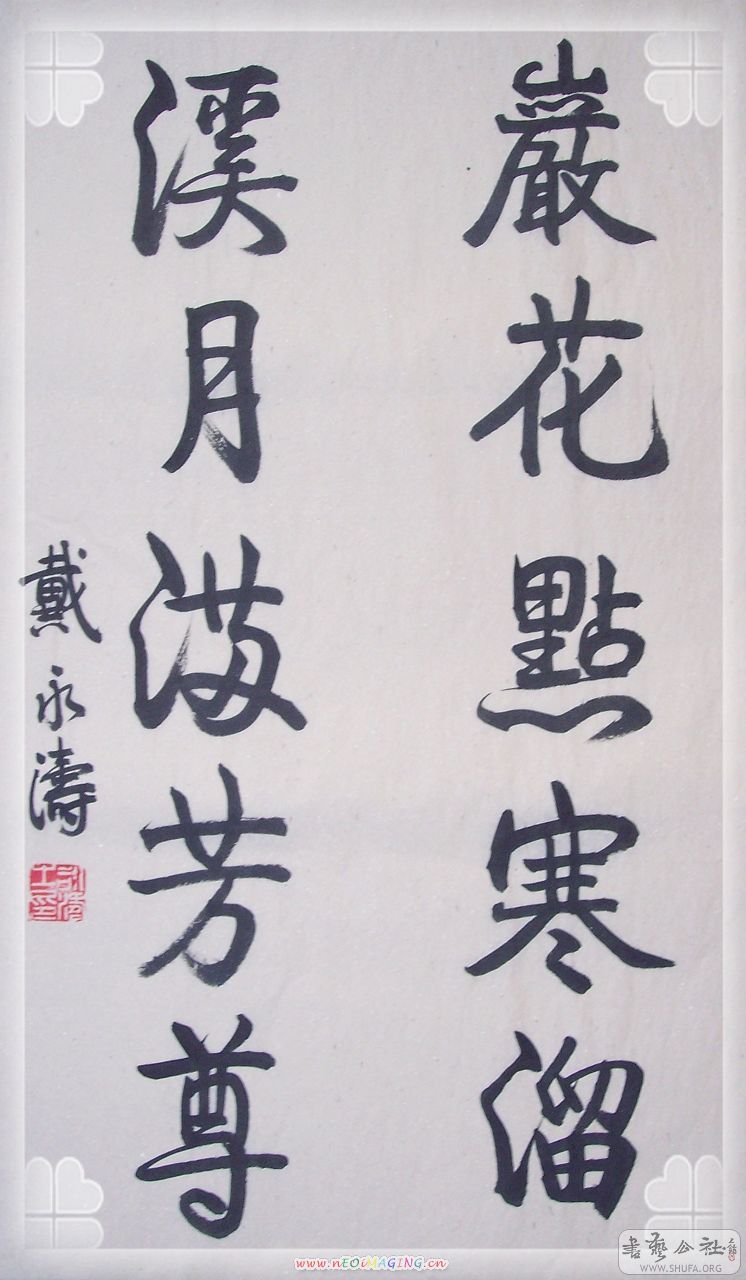 巖花點寒溜
溪月滿芳尊
戴永濤
www.nEOiMAGING.cn
書藝公社
WWW.SHUFA.ORG